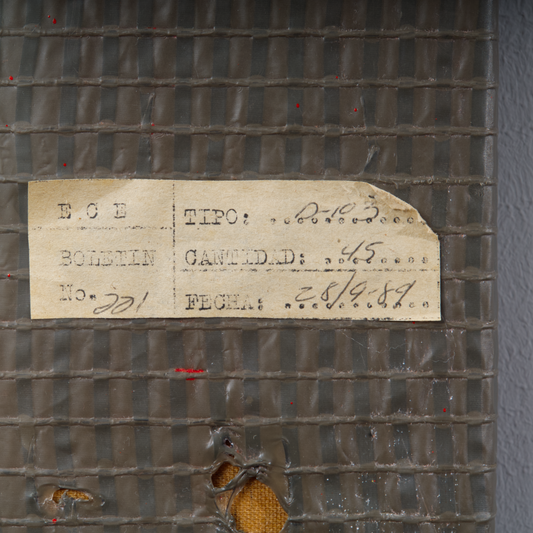 E.C E
BOLETIN
No. 221
TIPO: D-103
CANTIDAD: 45
FECHA: 28/9-89